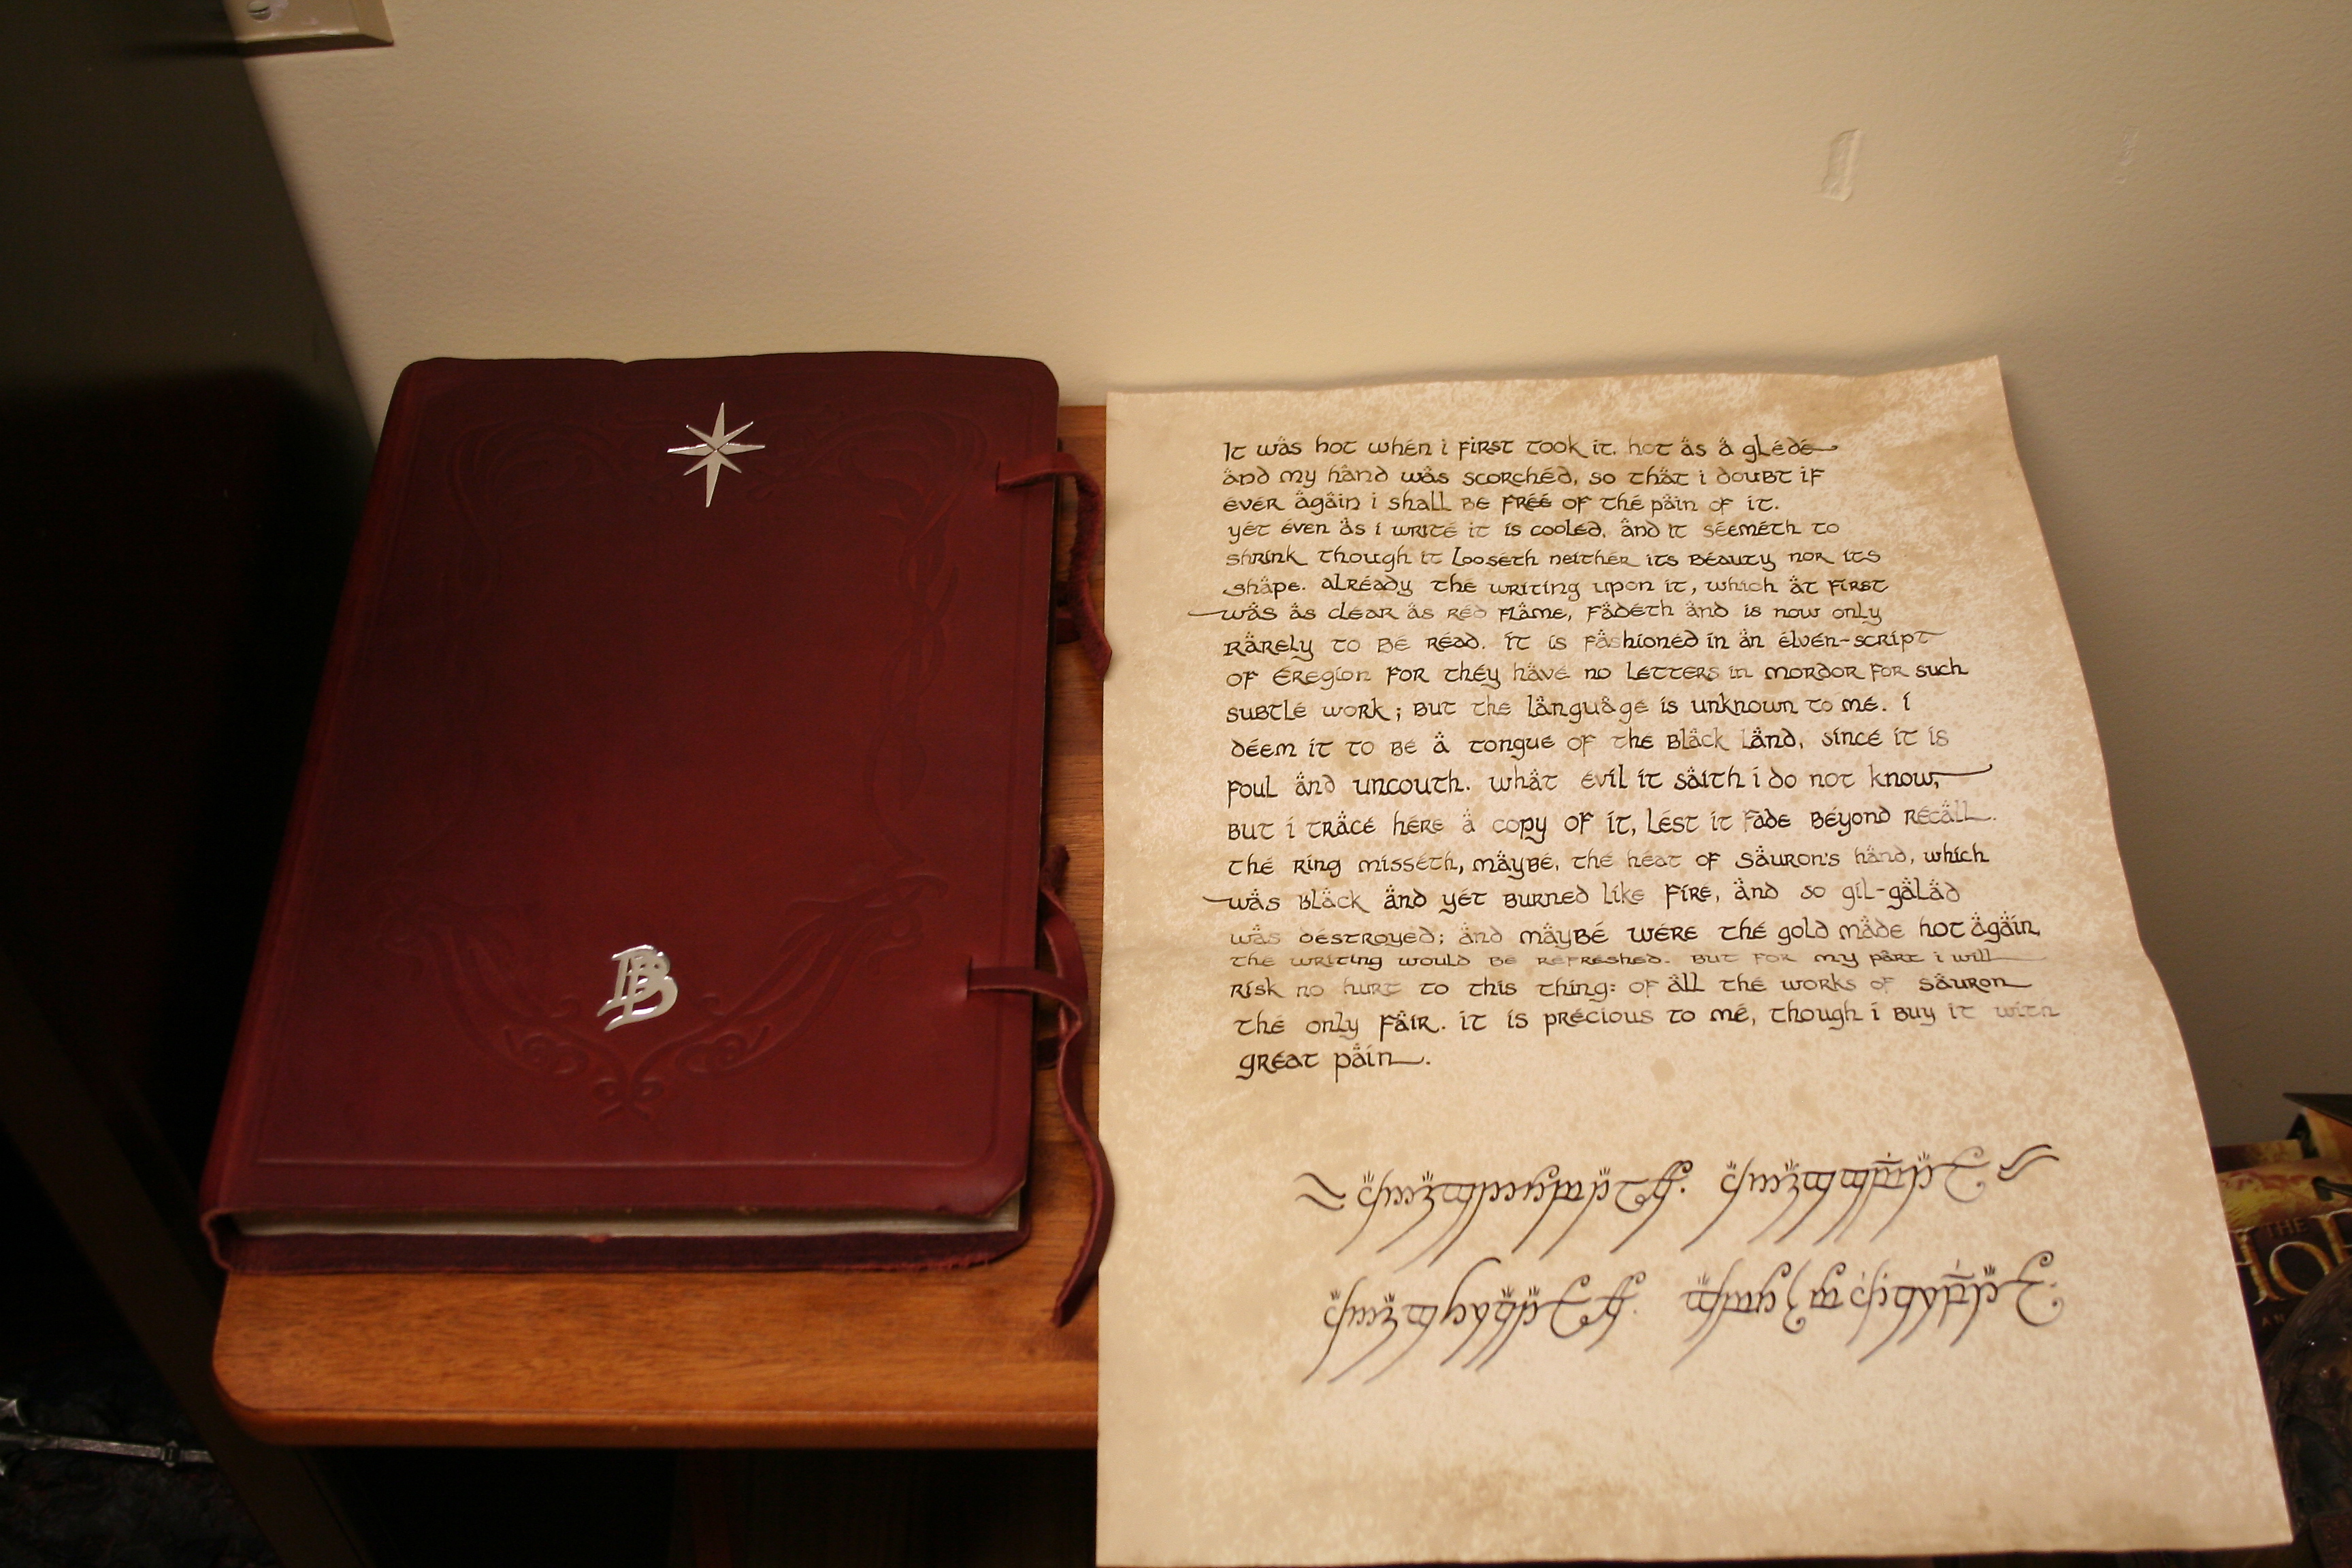 BB
It was hot when i first took it, hot as a glede
and my hand was scorched, so that i doubt if
ever again i shall be free of the pain of it.
yet even as i write it is cooled, and it seemeth to
shrink though it looseth neither its beauty nor its
shape. already the writing upon it, which at first
was as clear as red flame, fadeth and is now only
rarely to be read. it is fashioned in an elven-script
of eregion for they have no letters in mordor for such
subtle work; but the language is unknown to me. i
deem it to be a tongue of the black land, since it is
foul and uncouth. what evil it saith i do not know,
but i trace here a copy of it, lest it fade beyond recall.
the ring misseth, maybe, the heat of sauron's hand, which
was black and yet burned like fire, and so gil-galad
was destroyed; and maybe were the gold made hot again,
the writing would be refreshed. but for my part i will
risk no hurt to this thing: of all the works of sauron
the only fair. it is precious to me, though i buy it with
great pain.
THE